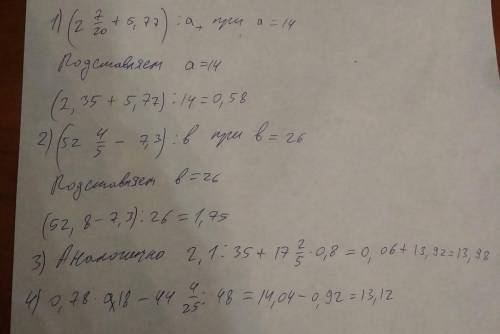 1) (2 7/20 + 5,77) : a, при a = 14
Подставляем a = 14
(2,35 + 5,77) : 14 = 0,58
2) (52 4/5 - 7,3) : в при в = 26
Подставляем в = 26
(52,8 - 7,3) : 26 = 1,75
3) Аналогично 2,1 : 35 + 17 2/5 · 0,8 = 0,06 + 13,92 = 13,98
4) 0,78 · 18 - 44 4/25 : 48 = 14,04 - 0,92 = 13,12